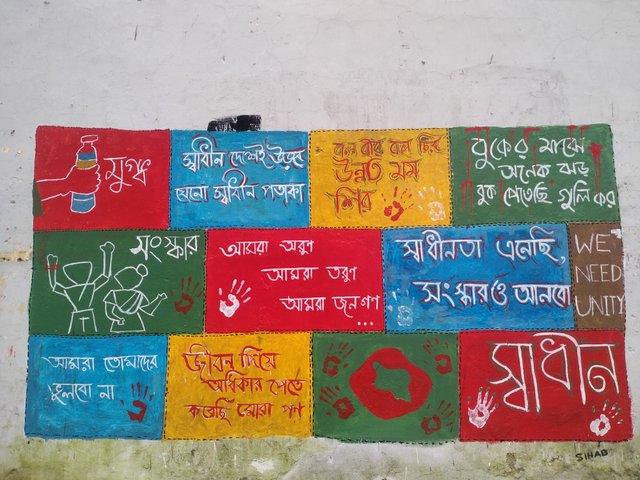 মুগ্ধ
স্বাধীন দেশেই উড়ুক
যেনো স্বাধীন পতাকা
বল বীর বল চির
উন্নত মম
শির
বুকের মাঝে
অনেক ঝড়
বুক পেতেছি গুলি কর
সংস্কার
আমরা অরুণ
আমরা তরুণ
আমরা জনগণ
...
স্বাধীনতা এনেছি,
সংস্কারও আনবো
WE
NEED
UNITY
আমরা তোমাদের
ভুলবো না
জীবন দিয়ে
অধিকার পেতে
করেছি মোরা পণ
স্বাধীন
SIHAB